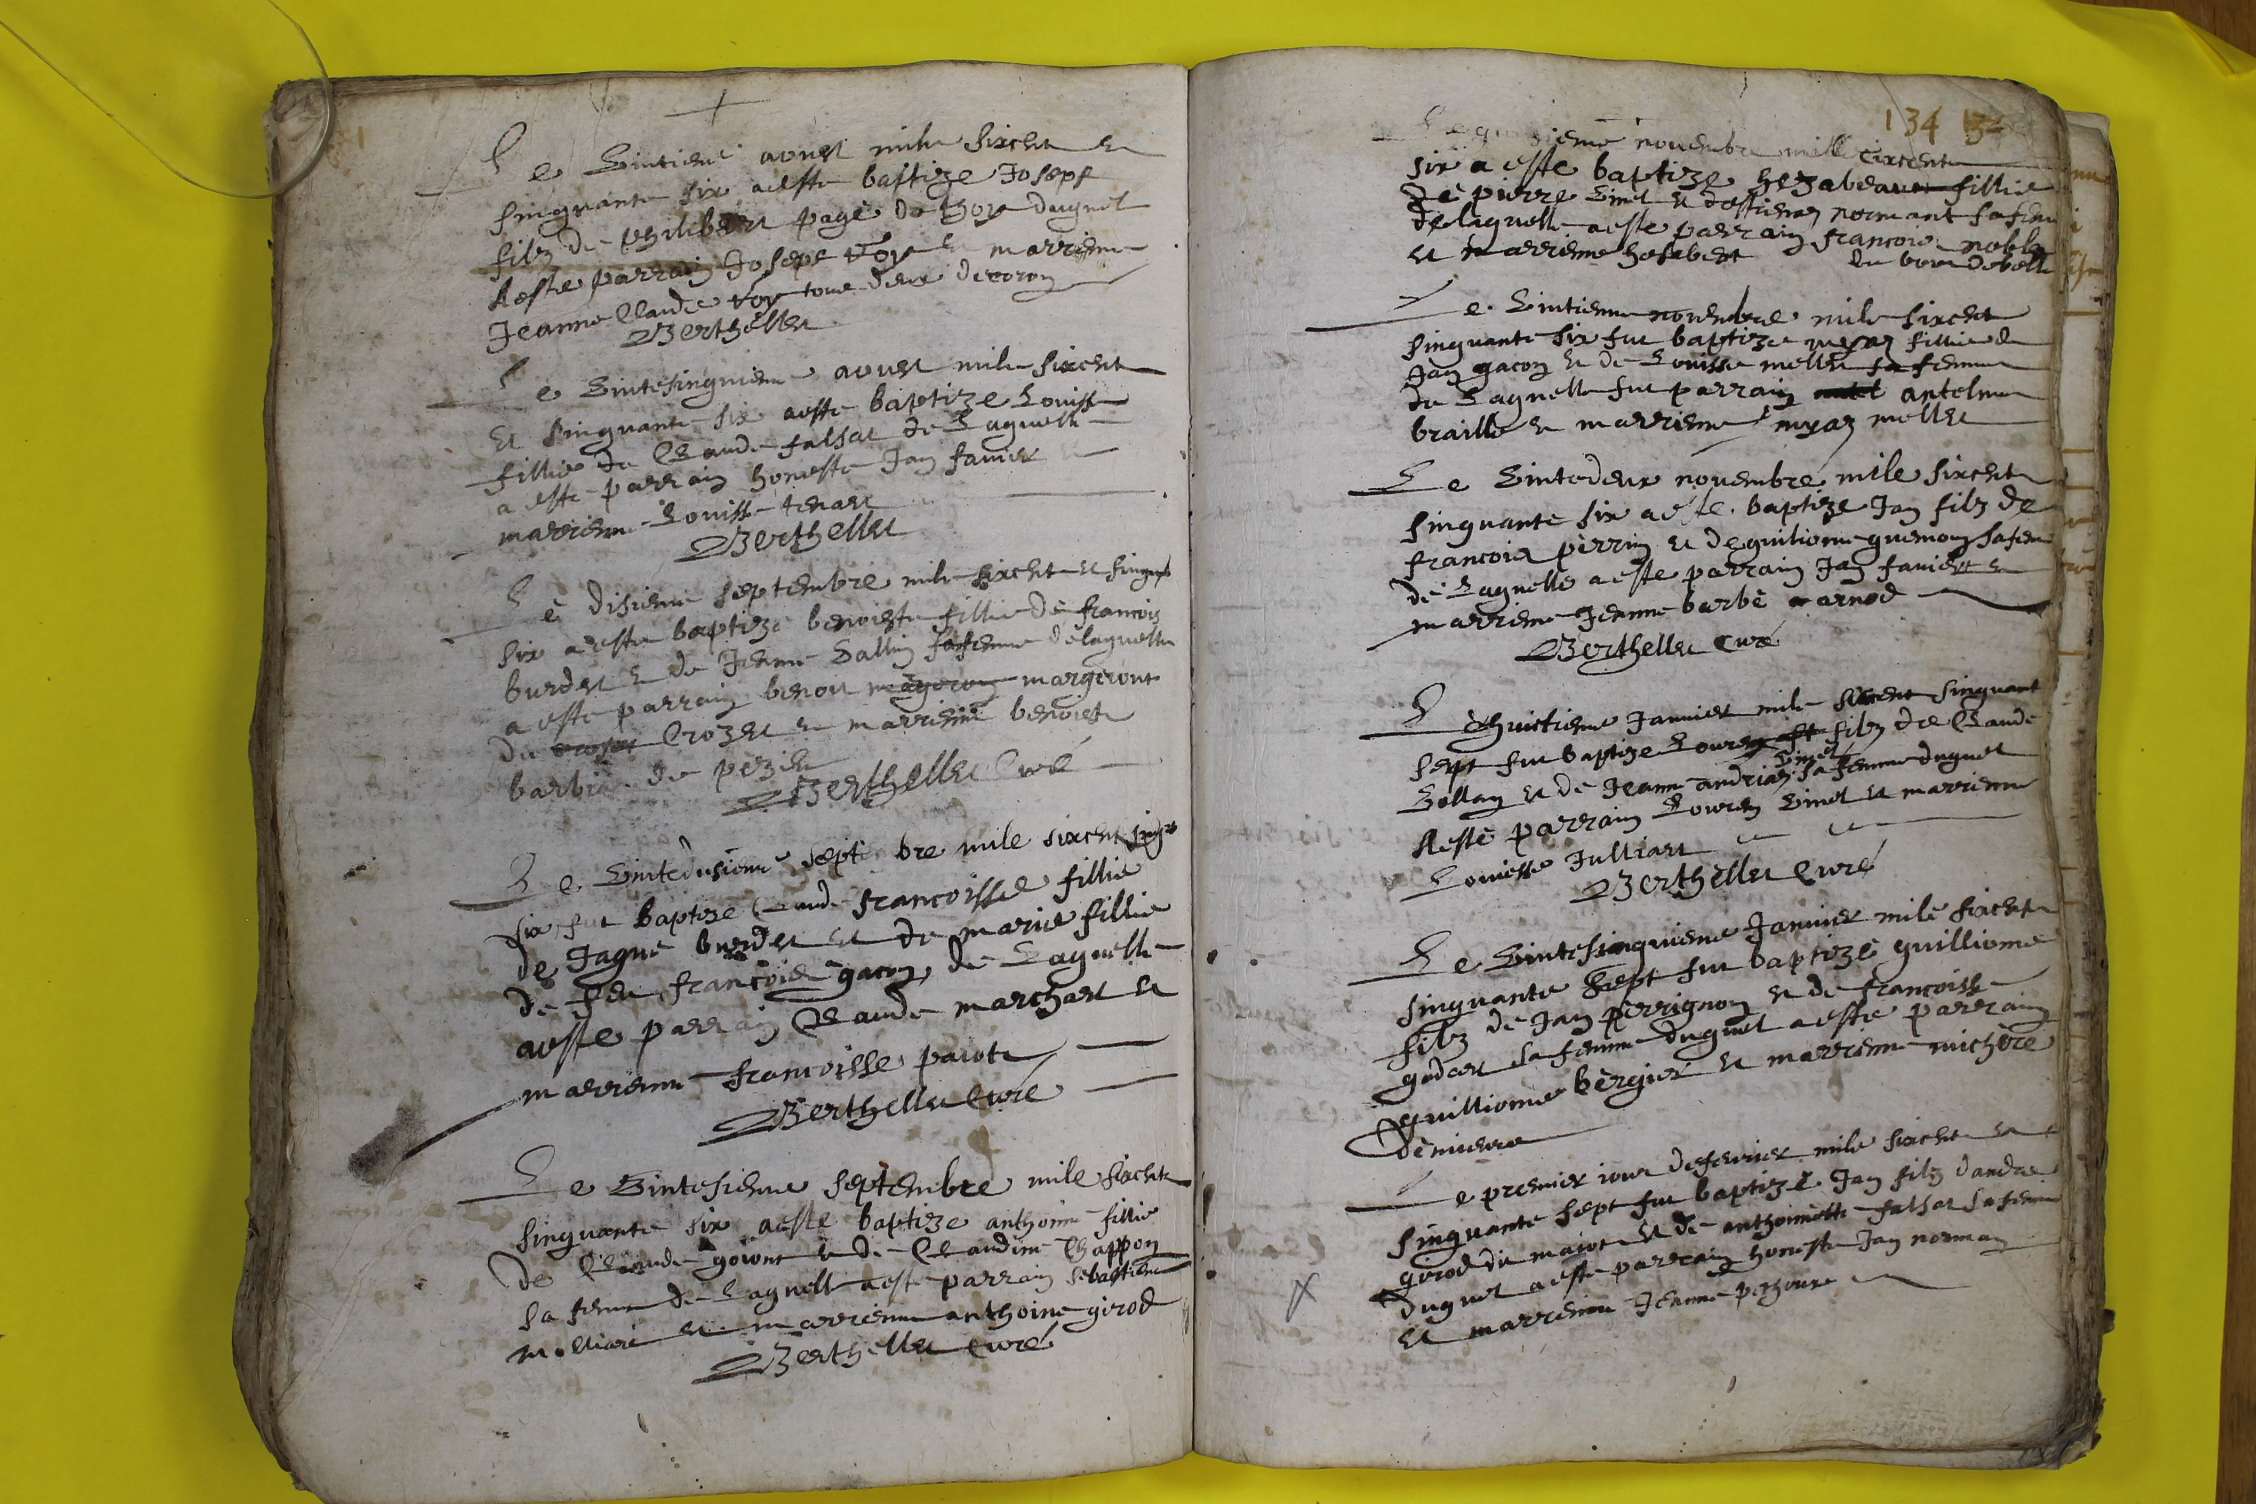 Le Vintieme aoust mile sixcent et
singuante six a este baptize Joseph
filz de philibert page de Roy duquel
A este parrain Joseph Roy et marrienne
Jeanne Claude Roy tous deux de coron
Berthellet
Le Vintesinquieme aoust mile sixcent
Et singuante six a este baptize Louisse
fillie de Claude falsat de Laquelle
a este parrain honeste Jan favier et
marrienne Louisse tenart
Berthellet
Le disieme septembre mile sixcent et singuante
six a este baptize benoiste fillie de francois
burdet et de Jenne Vallin sa femme de laquelle
a este parrain benoit margeront
du Crozet et marrienne benoiste
barbier de pezieu
Berthellet Curé
Le Vintedusieme septembre mile sixcent singte
six fut baptize Claude francoisse fillie
de Jaque burdet et de marie fillie
de feu francois gacon de Laquelle
a este parrain Claude marchant et
marrienne francoisse paiote
Berthellet Curé
Le Vintesieme septembre mile sixcent
singuante six a este baptize anthoine fillie
de Claude goiont et de Claudine Chappon
sa feme de Laquelle a este parrain sebastiene
molliare et marrienne anthoine girod
Berthellet Curé
134
sieme novembre mille sixcent
six a este baptize hezabeau fillie
de pierre Vinet et destienaz normant sa feme
de laquelle a este parrain francois noble
et marrienne hesabeot
Le Vintieme novembre mile sixcent
singuante six fut baptize myaz fillie de
Jan gacon et de Louisse mellet sa femme
de Laquelle fut parrain antelme
braille et marrienne myaz mellet
Le Vintedeux novembre mile sixcent
singuante six a este baptize Jan filz de
francois perrin et de guilionne guemon sa feme
de Laquelle a este parrain Jan favier et
marriene Jeanne barbe arnod
Berthellet Curé
Le huictieme Janvier mile sixcent singuante
sept fut baptize Louren filz de Claude
Vinet
Vollan et de Jeanne andriaz sa femme duquel
A este parrain Louren Vinet et marrienne
Louisse Julliart
Berthellet Curé
Le Vintesinquieme Janvier mile sixcent
singuante sept fut baptize guillionme
filz de Jan perrignon et de francoisse
godart sa femme duquel a este parrain
guillionme bergier et marrienne michere
Le premier iour de fevrier mile sixcent et
singuante sept fut baptize Jan filz dandre
girod du maior et de anthoinette falsat sa feme
duquel a este parrain honeste Jan norman
et marrienne Jenne